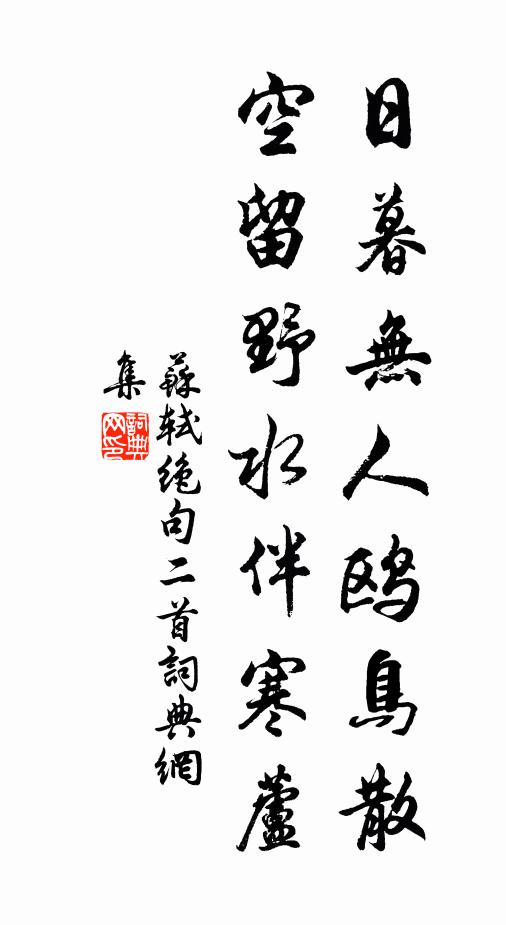 日暮無人鸥鳥散
空留野水伴寒蘆
蘇軾绝句二首詞典網
集
詞典
网印